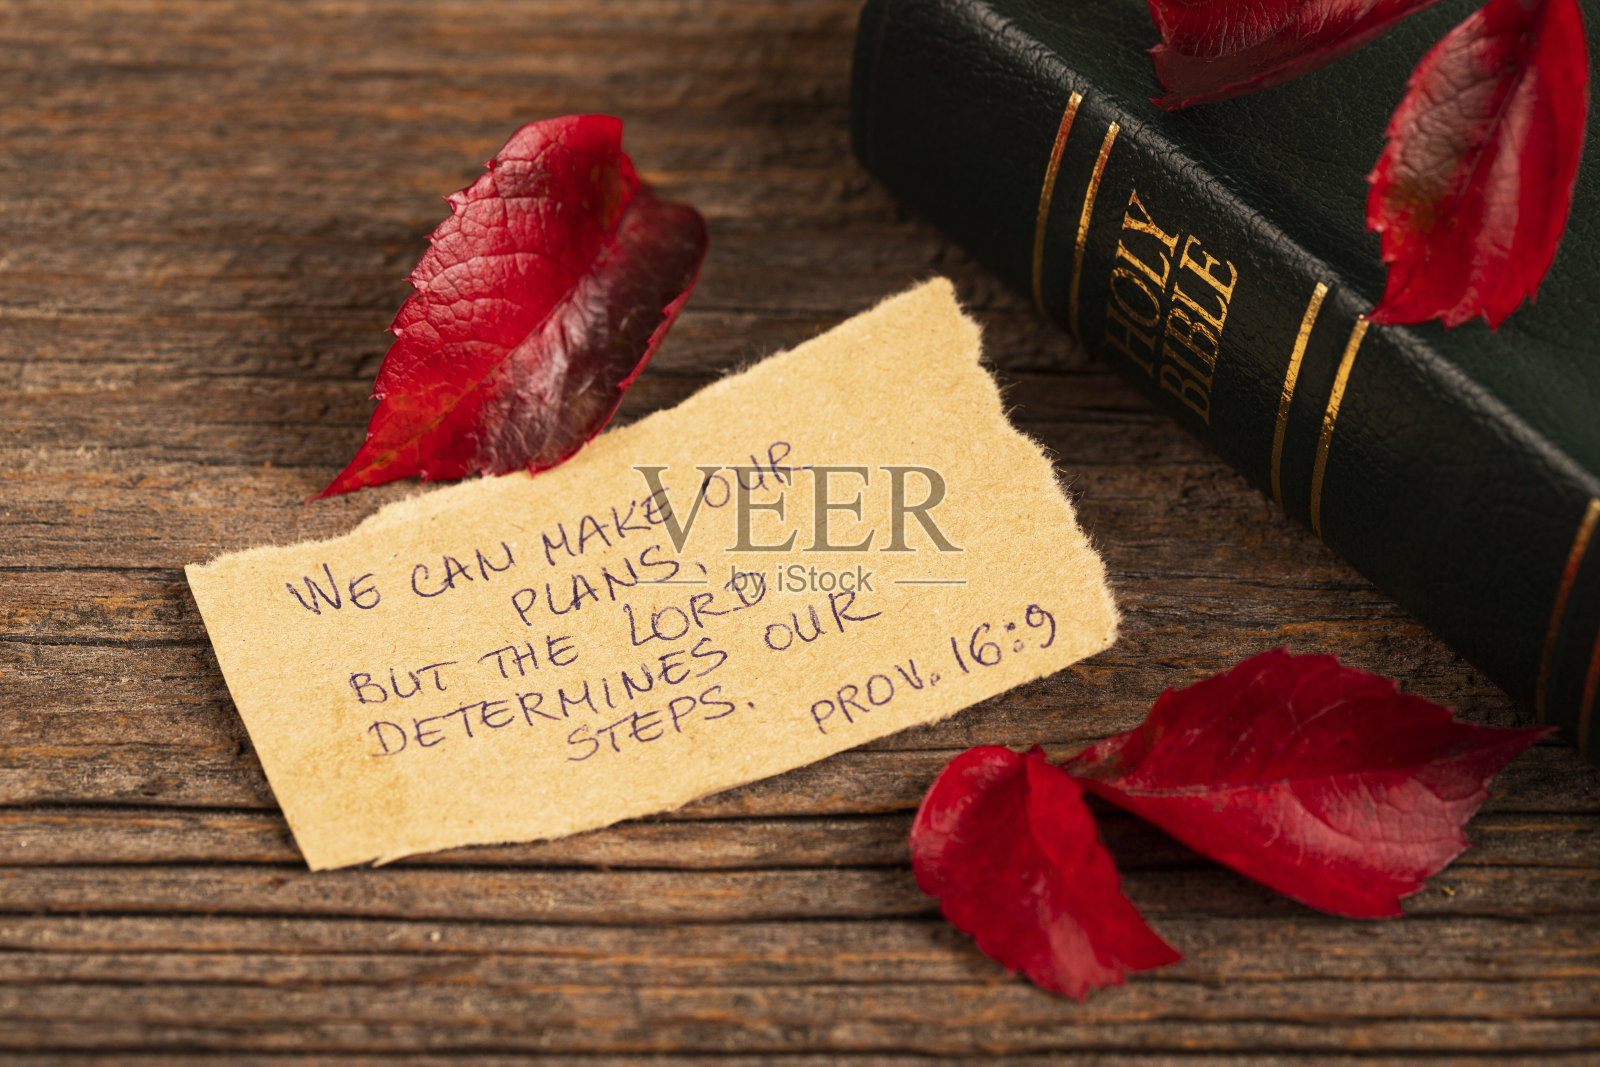 HOLY
BIBLE
WE CAN MAKE OUR
PLANS,
BUT THE LORD
DETERMINES OUR
STEPS. PROV. 16:9
VEER
by iStock